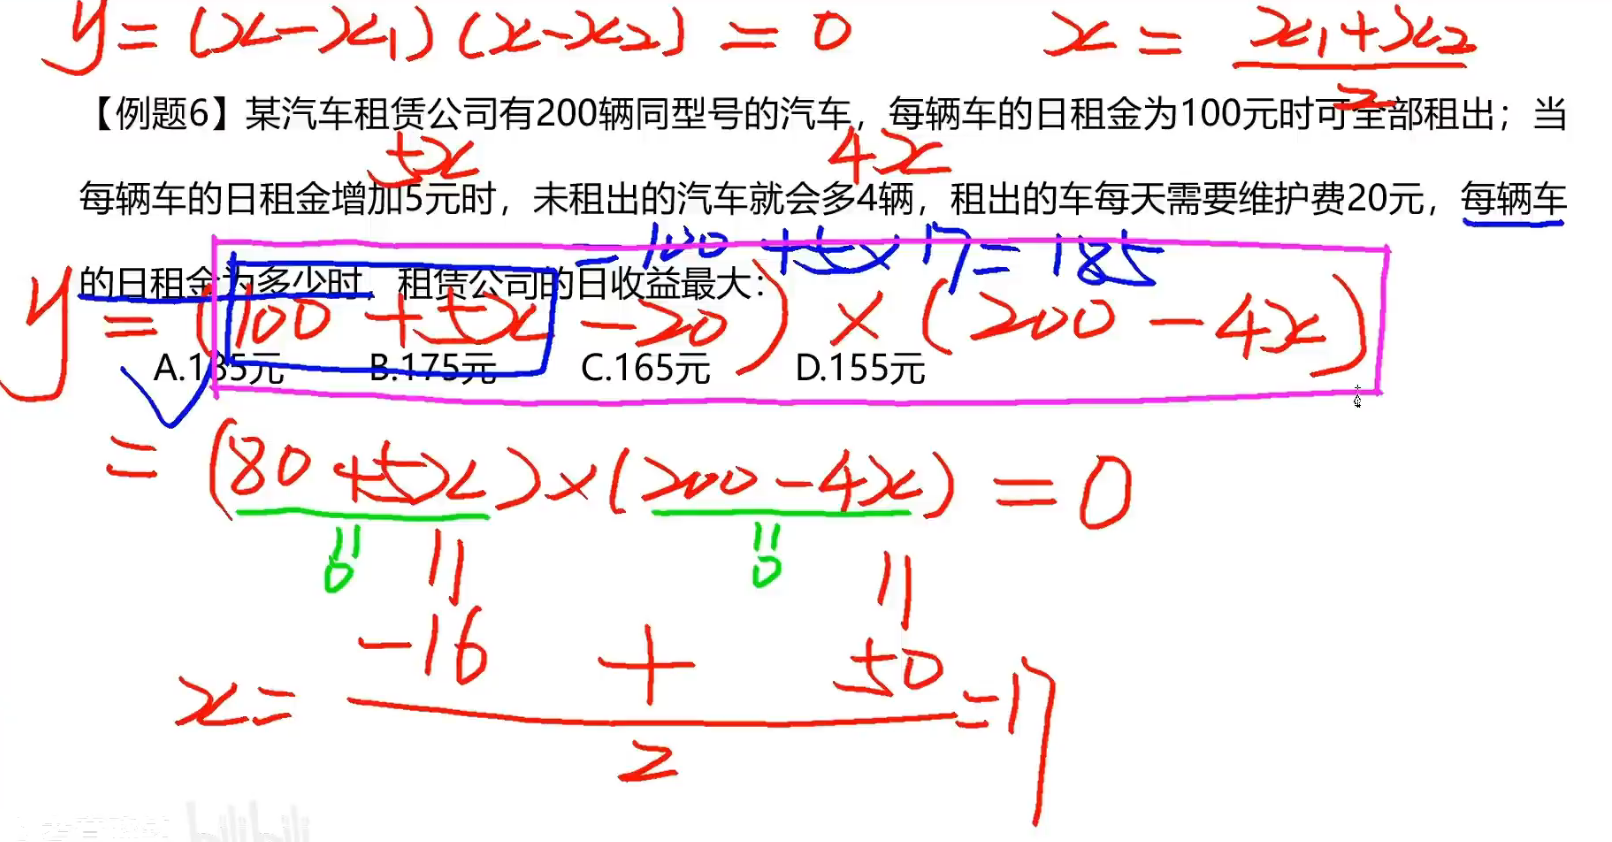 y=(x-x₁)(x-x₂)=0 x=(x₁+x₂)/2
【例题6】某汽车租赁公司有200辆同型号的汽车，每辆车的日租金为100元时可全部租出；当
5x 4x
每辆车的日租金增加5元时，未租出的汽车就会多4辆，租出的车每天需要维护费20元，每辆车
=100+5×17=185
的日租金为多少时，租赁公司的日收益最大：
y=(100+5x-20)×(200-4x)
A.185元 B.175元 C.165元 D.155元
=(80+5x)×(200-4x)=0
=0 =0
x=(-16+50)/2=17